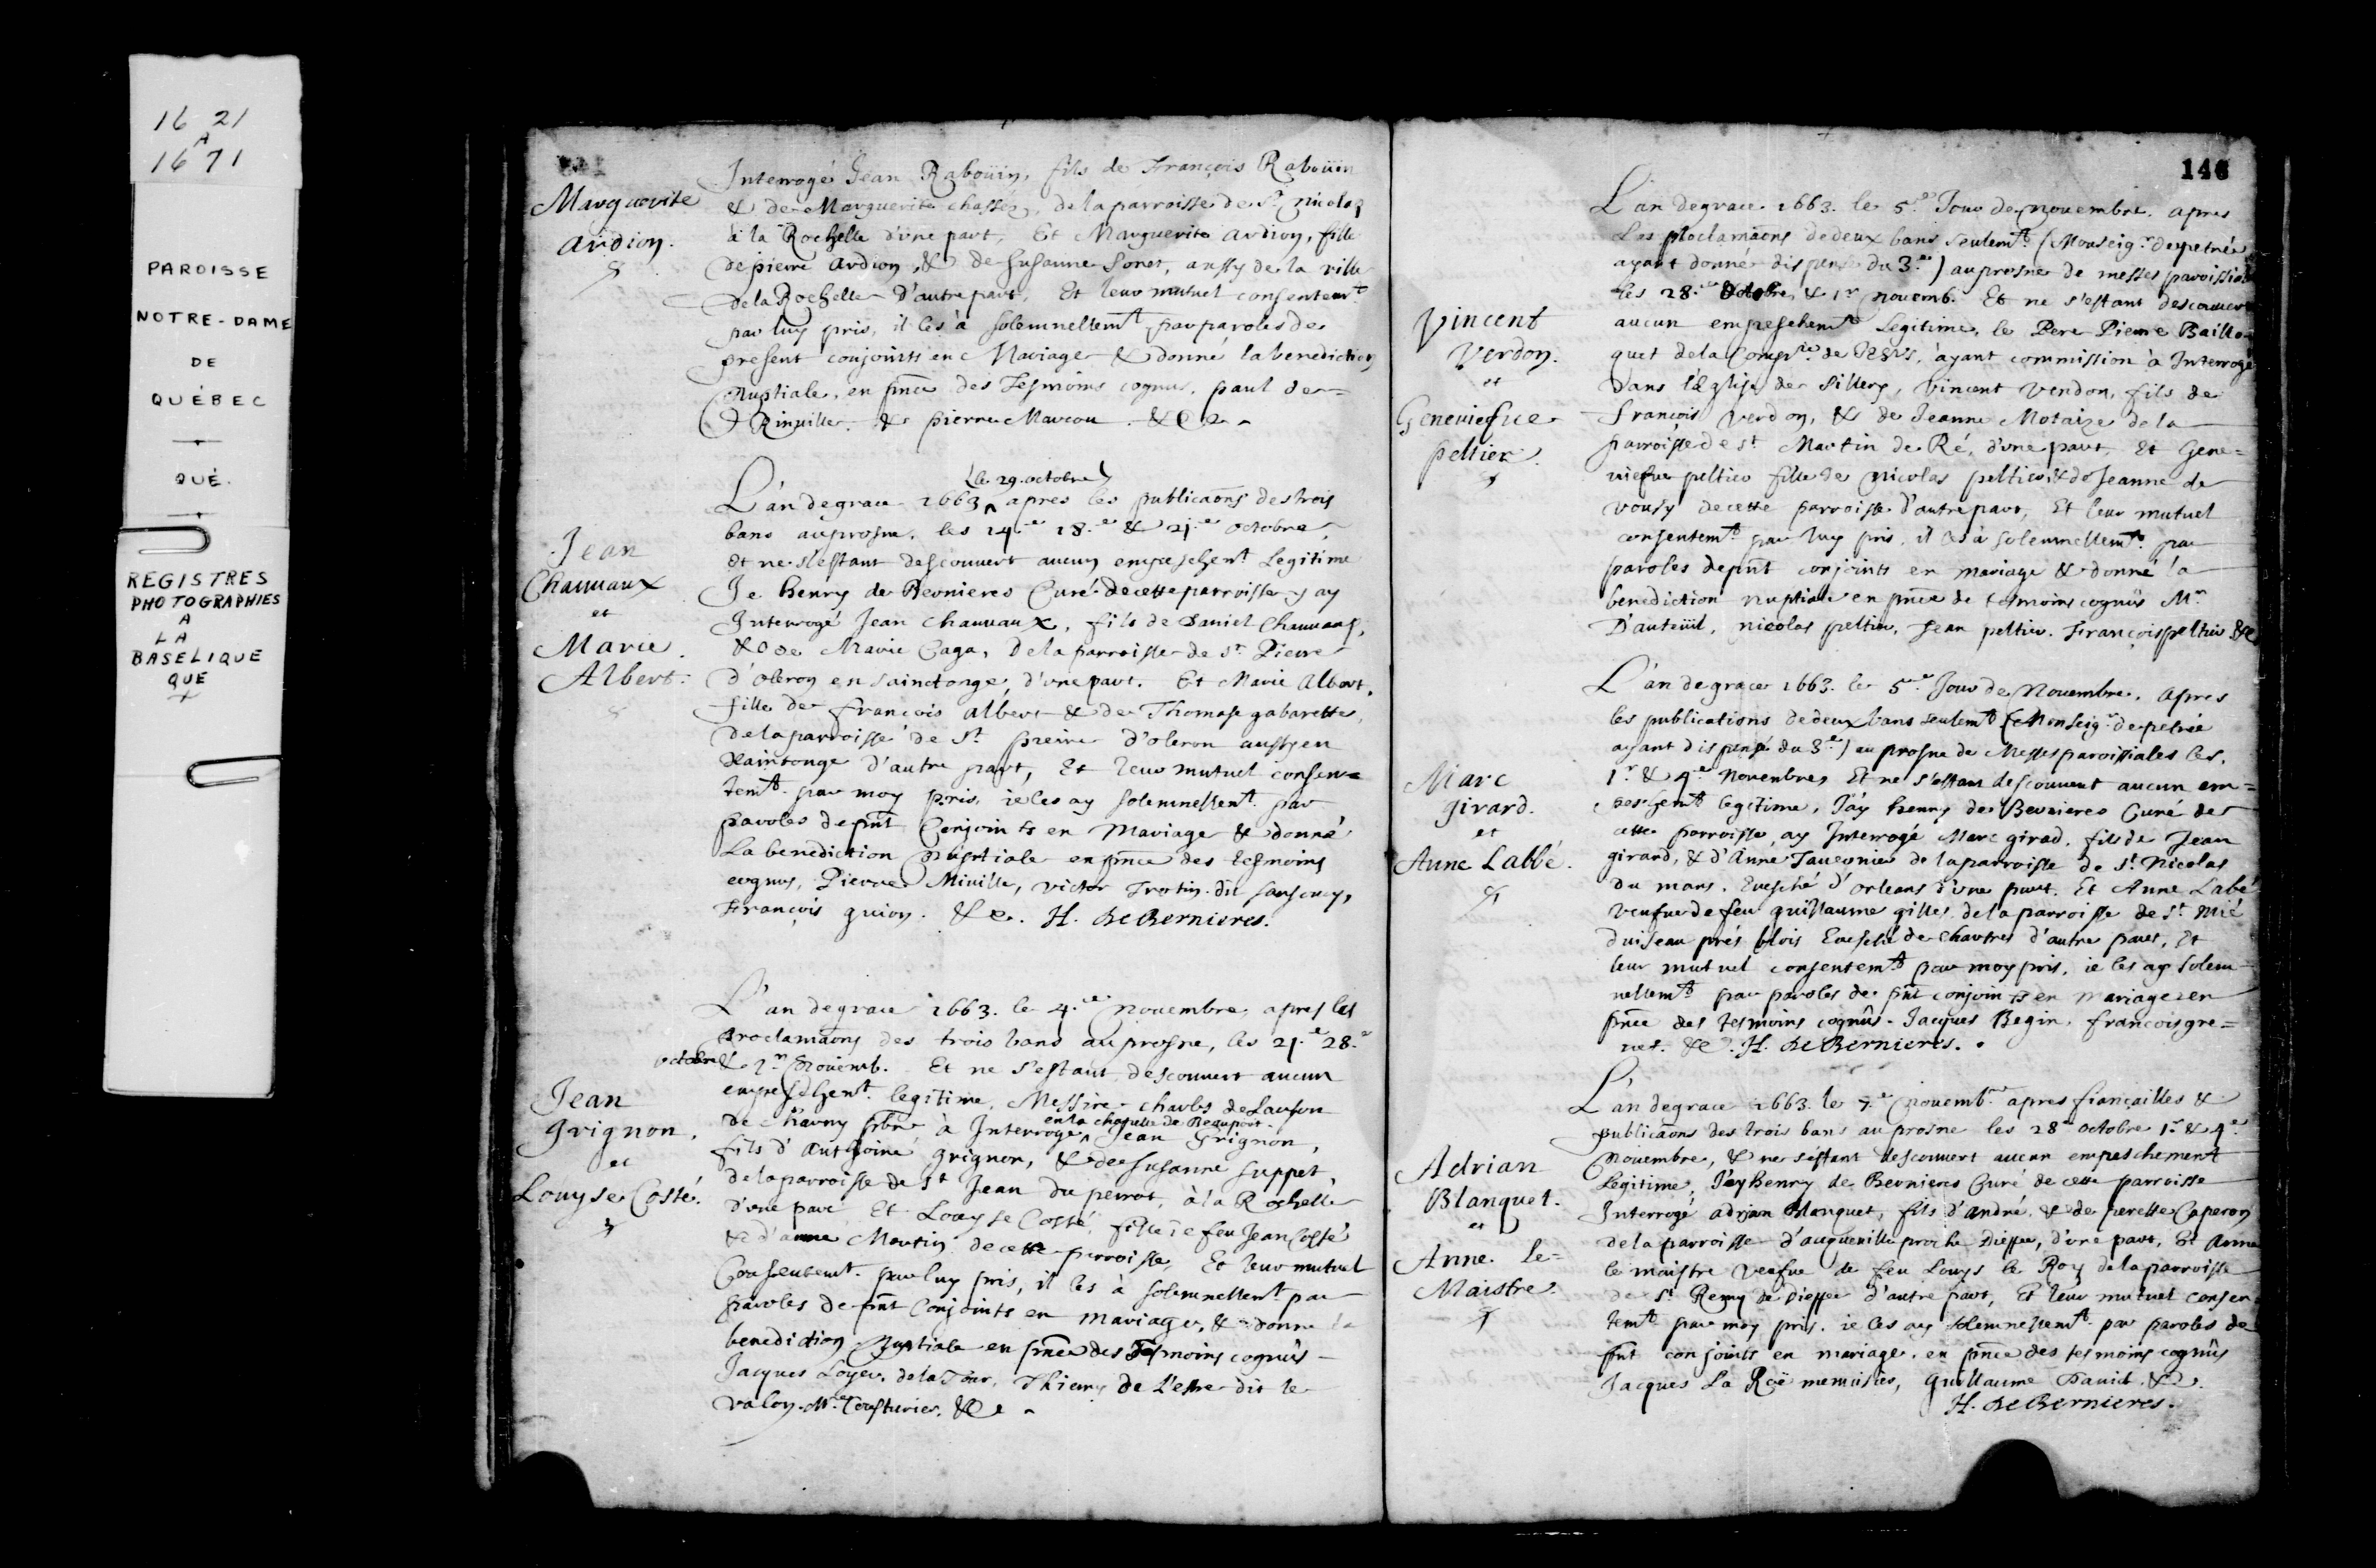 16 21
A
16 71
PAROISSE
NOTRE-DAME
DE
QUÉBEC
QUÉ.
REGISTRES
PHOTOGRAPHIES
A
LA
BASELIQUE
QUE
Marguerite
Ardion.
Interrogé Jean Raboüin, fils de François Raboüin
& de Marguerite chassé, de la parroisse de St Nicolas
à la Rochelle d'une part, Et Marguerite Ardion, fille
de pierre Ardion, & de Susanne Soret, aussy de la ville
de la Rochelle d'autre part, Et leur mutuel consentemt
par luy pris, il les à solemnellemt par paroles de
present conjoints en Mariage & donné la benediction
Nuptiale, en pnce des Tesmoins cognus, paul de
Rinville, & pierre Marcou &c.
Jean
Chauvaux
et
Marie
Albert.
(le 29. octobre)
L'an de grace 1663 apres les publicaons des trois
bans au prosne, les 14.e 18.e & 21.e octobre,
Et ne s'estant descouvert aucun empeschemt Legitime
Je henry de Bernieres Curé de cette parroisse, ay
Interrogé Jean chauvaux, fils de Daniel Chauvaux,
& de Marie Caga, de la parroisse de St. Pierre
d'Oleron en Sainctonge, d'une part. Et Marie Albert,
fille de françois albert & de Thomase gabarette,
de la parroisse de St. preire d'oleron aussy en
Xaintonge d'autre part, Et leur mutuel consen=
temt. par moy pris, ie les ay solemnellemt. par
paroles de pnt Conjoints en Mariage & donné
La benediction Nuptiale en pnce des tesmoins
cognus, Pierre Miville, victor Trotin dit sansoucy,
François guion. &c. H. De Bernieres.
Jean
Grignon.
et
Louyse Costé.
L'an de grace 1663. le 4.e Novembre, apres les
proclamaons des trois bans au prosne, les 21.e 28.e
octobre & 1.er Novemb. Et ne s'estant descouvert aucun
empeschemt. legitime, Messire charles de Lauson
en la chapelle de Beauport
de Charny pbre à Interrogé Jean Grignon,
fils d'Anthoine grignon, & de Susanne suppet,
de la parroisse de St Jean du perrot, à la Rochelle
d'une part Et Louyse Costé fille de feu Jean Costé
& d'anne Martin de cette parroisse, Et leur mutuel
Consentemt. par luy pris, il les à solemnellemt. par
paroles de pnt Conjoints en mariage, & donné la
benediction Nuptiale en pnce des Tesmoins cognus
Jacques Loyer de la Tour, Thierry de L'estre dit le
valon. Mr Cousturier. &c.
146
Vincent
Verdon.
et
Geneviefve
peltier.
L'an de grace 1663. le 5.e Jour de Novembre. apres
Les proclamaons de deux bans seulemt. (Monseigr. de petrée
ayant donné dispense du 3.e) au prosne de messes paroissiales
les 28.e Octobre, & 1.er novemb. Et ne s'estant descouvert
aucun empeschemt Legitime, le Pere Pierre Baillo-
quet de la Compie. de Jesus, ayant commission à Interrogé
dans l'eglise de Sillery, Vincent Verdon, fils de
françois Verdon, & de Jeanne Motaize de la
parroisse de St Martin de Ré, d'une part, Et Gene=
viefve peltier fille de Nicolas peltier & de Jeanne de
Vousy de cette parroisse d'autre part, Et leur mutuel
consentemt. par luy pris, il les à solemnellemt. par
paroles de pnt conjoints en mariage & donné la
benediction nuptiale en pnce de tesmoins cognûs Mr
D'auteüil, nicolas peltier, Jean peltier. François peltier &c
Marc
girard.
et
Anne Labbé.
L'an de grace 1663. le 5.e Jour de Novembre. Apres
les publications de deux bans seulemt. (Monseigr. de petrée
ayant dispensé du 3.e) au prosne de Messes paroissiales les
1.r & 4.e Novembre, Et ne s'estant descouvert aucun em=
peschemt legitime, J'ay henry de Bernieres Curé de
cette parroisse, ay Interrogé Marc girad, fils de Jean
girard, & d'Anne Tavernier de la parroisse de St. Nicolas
du mans, Evesché d'orleans d'une part. Et Anne Labé
veufve de feu guillaume gilles de la parroisse de St Mié
duiseau prés blois Evesché de chartres d'autre part, Et
leur mutuel consentemt. par moy pris, ie les ay solem-
nellemt. par paroles de pnt conjoints en mariage en
pnce des tesmoins cognûs. Jacques Begin, francois gre=
net. &c. H. De Bernieres.
Adrian
Blanquet.
et
Anne. le=
Maistre.
L'an de grace 1663. le 7.e Novemb.e apres fiançailles &
publicaons des trois bans au prosne les 28.e octobre 1.r & 4.e
Novembre, & ne s'estant descouvert aucun empeschement
Legitime, J'ay henry de Bernieres Curé de cette parroisse
Interrogé adrian Blanquet, fils d'André, & de perette Caperon
de la parroisse d'auguenille proche Dieppe, d'une part, Et Anne
le maistre veufve de feu Louys le Roy de la parroisse
de St. Remy de Dieppe d'autre part, Et leur mutuel consen-
temt. par moy pris. ie les ay solemnellemt. par paroles de
pnt conjoints en mariage, en pnce des tesmoins cognûs
Jacques La Roë menuisier, Guillaume David. &c.
H. De Bernieres.